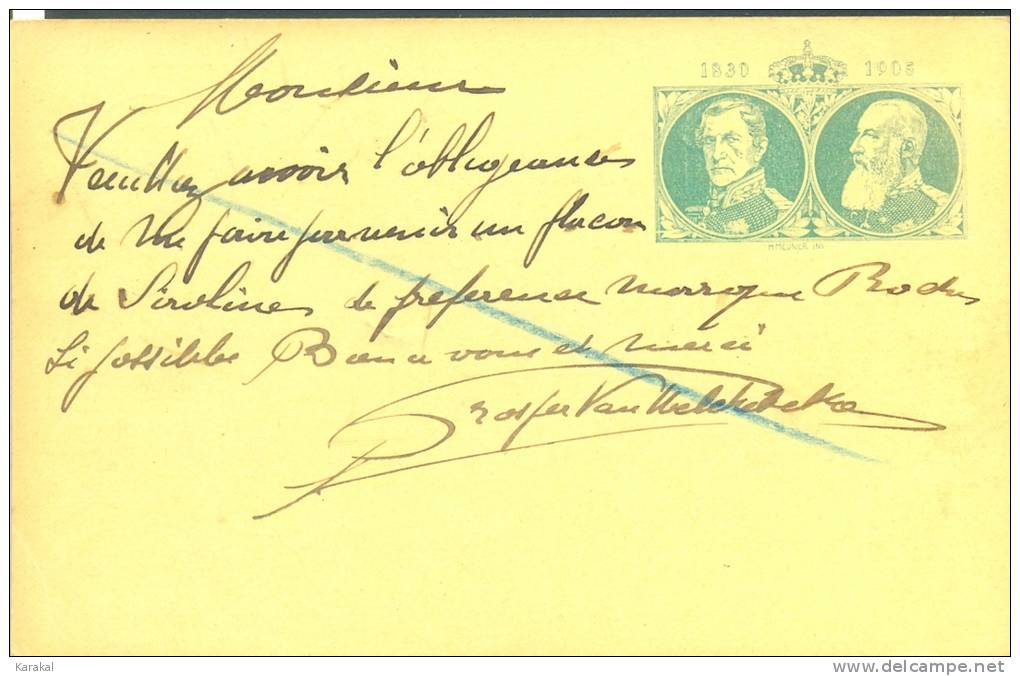 1830 1905
Monsieur
Veuillez avoir l'obligeances
de me faire parvenir un flacon
de Sirolines de preference marque Roche
Si possible Bien a vous et merci
Prosper Van
H MEUNIER INV
Karakal
http://www.delcampe.net